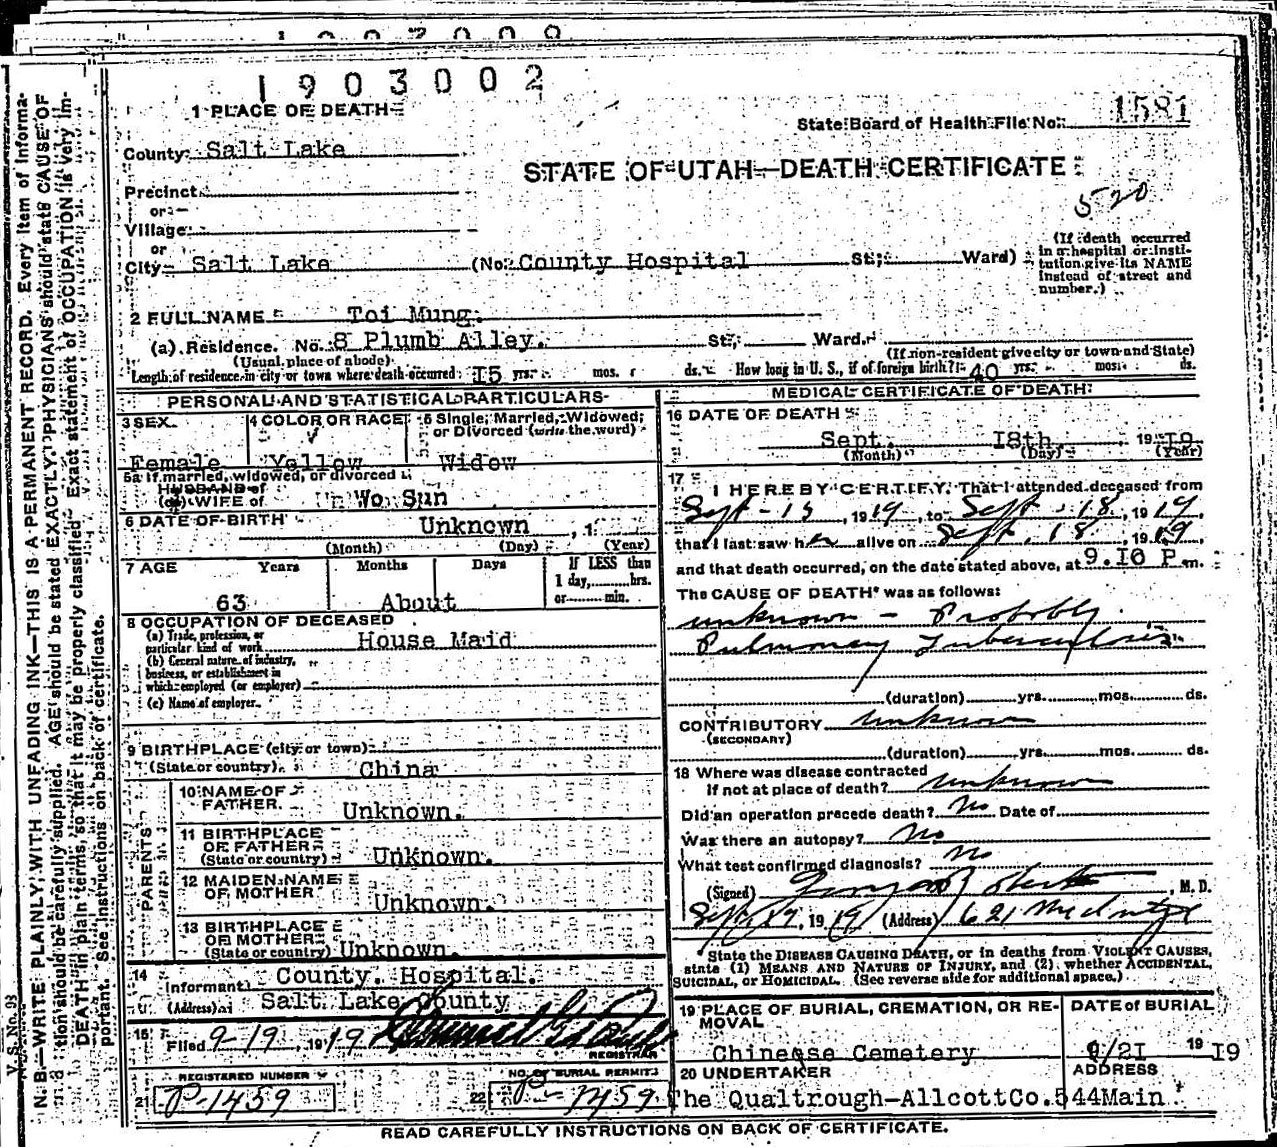 1903002
1 PLACE OF DEATH
State Board of Health File No. 1581
County Salt Lake
STATE OF UTAH—DEATH CERTIFICATE
Precinct
520
or
Village
or
City Salt Lake (No. County Hospital St.; Ward)
(If death occurred in a hospital or institution give its NAME instead of street and number.)
2 FULL NAME Toi Mung.
(a) Residence. No. 8 Plumb Alley. St., Ward.
(Usual place of abode) (If non-resident give city or town and State)
Length of residence in city or town where death occurred 15 yrs. mos. ds. How long in U. S., if of foreign birth? 40 yrs. mos. ds.
PERSONAL AND STATISTICAL PARTICULARS
3 SEX 4 COLOR OR RACE 5 Single, Married, Widowed, or Divorced (write the word)
Female Yellow Widow
5a If married, widowed, or divorced
HUSBAND of
(or) WIFE of Wo Sun
6 DATE OF BIRTH Unknown, 1
(Month) (Day) (Year)
7 AGE Years Months Days If LESS than
1 day, hrs.
or min.
63 About
8 OCCUPATION OF DECEASED
(a) Trade, profession, or
particular kind of work House Maid
(b) General nature of industry,
business, or establishment in
which employed (or employer)
(c) Name of employer
9 BIRTHPLACE (city or town)
(State or country) China
PARENTS
10 NAME OF
FATHER Unknown.
11 BIRTHPLACE
OF FATHER
(State or country) Unknown.
12 MAIDEN NAME
OF MOTHER Unknown.
13 BIRTHPLACE
OF MOTHER
(State or country) Unknown.
14
Informant County Hospital.
(Address) Salt Lake County
15
Filed 9-19, 1919
REGISTRAR
REGISTERED NUMBER NO. OF BURIAL PERMIT
21 P-1459 22 P-1459
MEDICAL CERTIFICATE OF DEATH
16 DATE OF DEATH
Sept. 18th, 1919
(Month) (Day) (Year)
17
I HEREBY CERTIFY, That I attended deceased from
Sept-15, 1919, to Sept. 18, 1919,
that I last saw her alive on Sept. 18, 1919
and that death occurred, on the date stated above, at 9.10 P m.
The CAUSE OF DEATH* was as follows:
unknown - Probobly
Pulmonary Tuberculosis
(duration) yrs. mos. ds.
CONTRIBUTORY unknown
(SECONDARY)
(duration) yrs. mos. ds.
18 Where was disease contracted
If not at place of death? unknown
Did an operation precede death? No Date of
Was there an autopsy? No
What test confirmed diagnosis? No
(Signed) , M. D.
Sept, 19, 1919 (Address) 621 McIntyre
*State the DISEASE CAUSING DEATH, or in deaths from VIOLENT CAUSES,
state (1) MEANS AND NATURE OF INJURY, and (2) whether ACCIDENTAL,
SUICIDAL, or HOMICIDAL. (See reverse side for additional space.)
19 PLACE OF BURIAL, CREMATION, OR REMOVAL DATE of BURIAL
Chinease Cemetery 9/21 1919
20 UNDERTAKER ADDRESS
The Qualtrough-AllcottCo. 544Main
READ CAREFULLY INSTRUCTIONS ON BACK OF CERTIFICATE.
V. S. No. 98
N. B.—WRITE PLAINLY, WITH UNFADING INK—THIS IS A PERMANENT RECORD. Every item of information should be carefully supplied. AGE should be stated EXACTLY. PHYSICIANS should state CAUSE OF DEATH in plain terms, so that it may be properly classified. Exact statement of OCCUPATION is very important. See instructions on back of certificate.